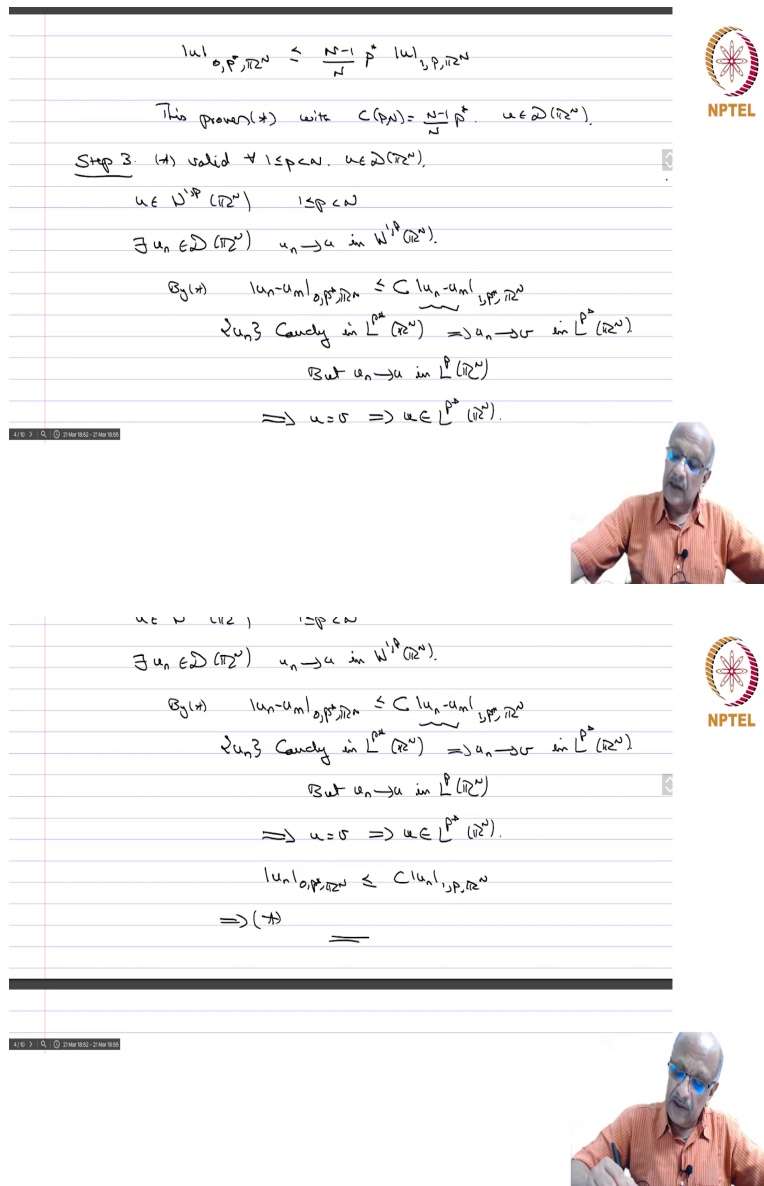 |u|_{0,p*,ℝ^N} ≤ \frac{N-1}{N} p* |u|_{1,p,ℝ^N}
NPTEL
This proves (*) with C(p,N) = \frac{N-1}{N} p*. u ∈ 𝒟(ℝ^N).
Step 3. (*) valid ∀ 1≤p<N. u ∈ 𝒟(ℝ^N).
u ∈ W^{1,p}(ℝ^N) 1≤p<N
∃ u_n ∈ 𝒟(ℝ^N) u_n → u in W^{1,p}(ℝ^N).
By (*) |u_n-u_m|_{0,p*,ℝ^N} ≤ C |u_n-u_m|_{1,p*,ℝ^N}
{u_n} Cauchy in L^{p*}(ℝ^N) ⇒ u_n → v in L^{p*}(ℝ^N)
But u_n → u in L^p(ℝ^N)
⇒ u = v ⇒ u ∈ L^{p*}(ℝ^N).
4/10 21 Mar 18:52 - 21 Mar 18:55
1≤p<N
∃ u_n ∈ 𝒟(ℝ^N) u_n → u in W^{1,p}(ℝ^N).
NPTEL
By (*) |u_n-u_m|_{0,p*,ℝ^N} ≤ C |u_n-u_m|_{1,p*,ℝ^N}
{u_n} Cauchy in L^{p*}(ℝ^N) ⇒ u_n → v in L^{p*}(ℝ^N)
But u_n → u in L^p(ℝ^N)
⇒ u = v ⇒ u ∈ L^{p*}(ℝ^N).
|u_n|_{0,p*,ℝ^N} ≤ C |u_n|_{1,p,ℝ^N}
⇒ (*)
4/10 21 Mar 18:52 - 21 Mar 18:55